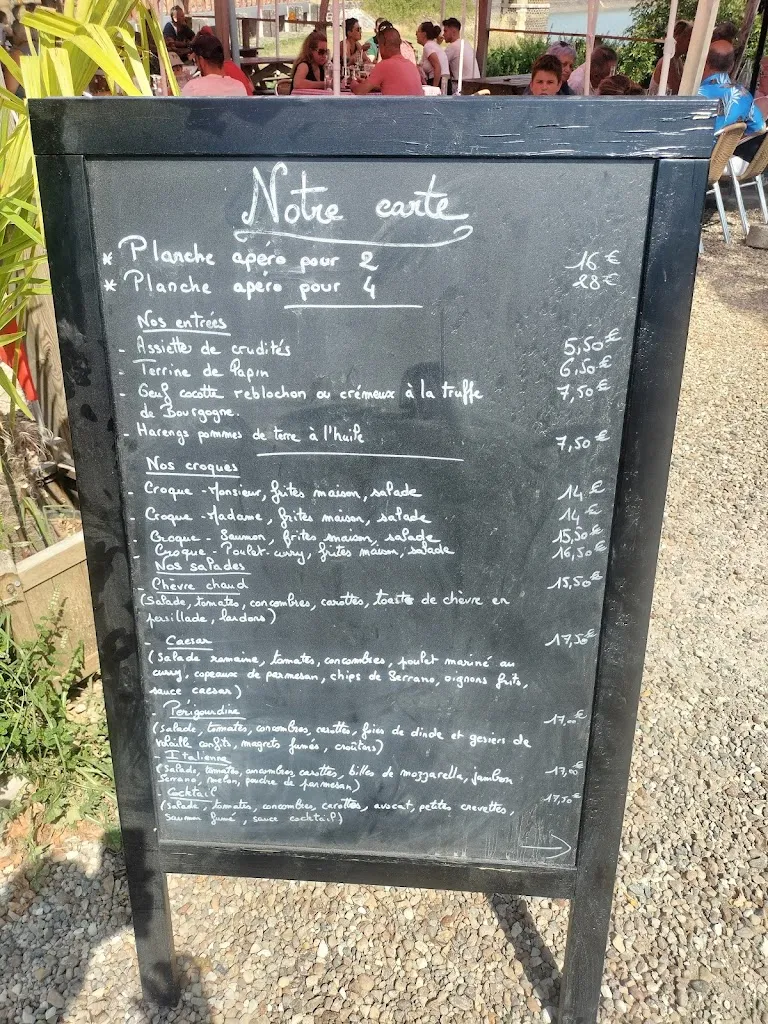 Notre carte
* Planche apéro pour 2 16 €
* Planche apéro pour 4 28 €
Nos entrées
- Assiette de crudités 5,50 €
- Terrine de Papin 6,50 €
- Oeuf cocotte reblochon ou crémeux à la truffe 7,50 €
de Bourgogne.
- Harengs pommes de terre à l'huile 7,50 €
Nos croques
- Croque-Monsieur, frites maison, salade 14 €
- Croque-Madame, frites maison, salade 14 €
- Croque-Saumon, frites maison, salade 15,50 €
- Croque-Poulet-curry, frites maison, salade 16,50 €
Nos salades
- Chèvre chaud 15,50 €
(Salade, tomates, concombres, carottes, toasts de chèvre en
persillade, lardons)
- Caesar 17,50 €
(Salade romaine, tomates, concombres, poulet mariné au
curry, copeaux de parmesan, chips de Serrano, oignons frits,
sauce caesar)
- Périgourdine 17,00 €
(Salade, tomates, concombres, carottes, foies de dinde et gesiers de
volaille confits, magrets fumés, croûtons)
- Italienne 17,00 €
(Salade, tomates, concombres, carottes, billes de mozzarella, jambon
Serrano, melon, poudre de parmesan)
- Cocktail 17,50 €
(Salade, tomates, concombres, carottes, avocat, petites crevettes,
saumon fumé, sauce cocktail)